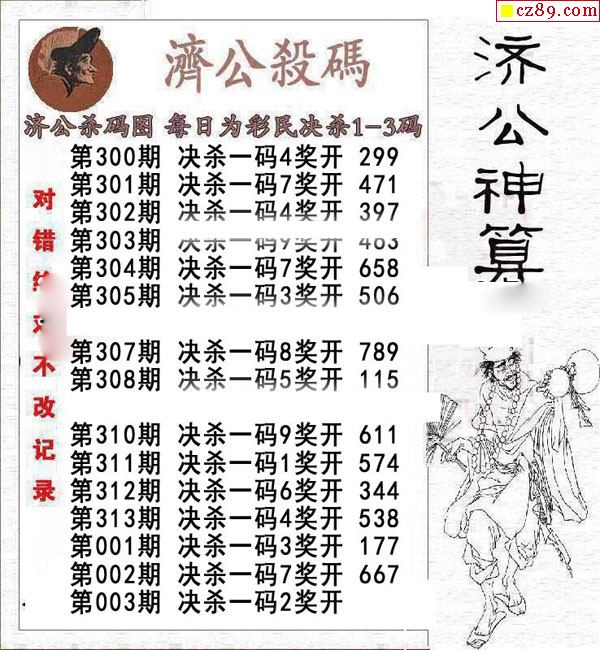 cz89.com
濟公殺碼
济公杀码图 每日为彩民决杀1-3码
第300期 决杀一码4奖开 299
第301期 决杀一码7奖开 471
第302期 决杀一码4奖开 397
第303期 决杀一码9奖开 463
第304期 决杀一码7奖开 658
第305期 决杀一码3奖开 506
第307期 决杀一码8奖开 789
第308期 决杀一码5奖开 115
第310期 决杀一码9奖开 611
第311期 决杀一码1奖开 574
第312期 决杀一码6奖开 344
第313期 决杀一码4奖开 538
第001期 决杀一码3奖开 177
第002期 决杀一码7奖开 667
第003期 决杀一码2奖开
对错绝对不改记录
济公神算